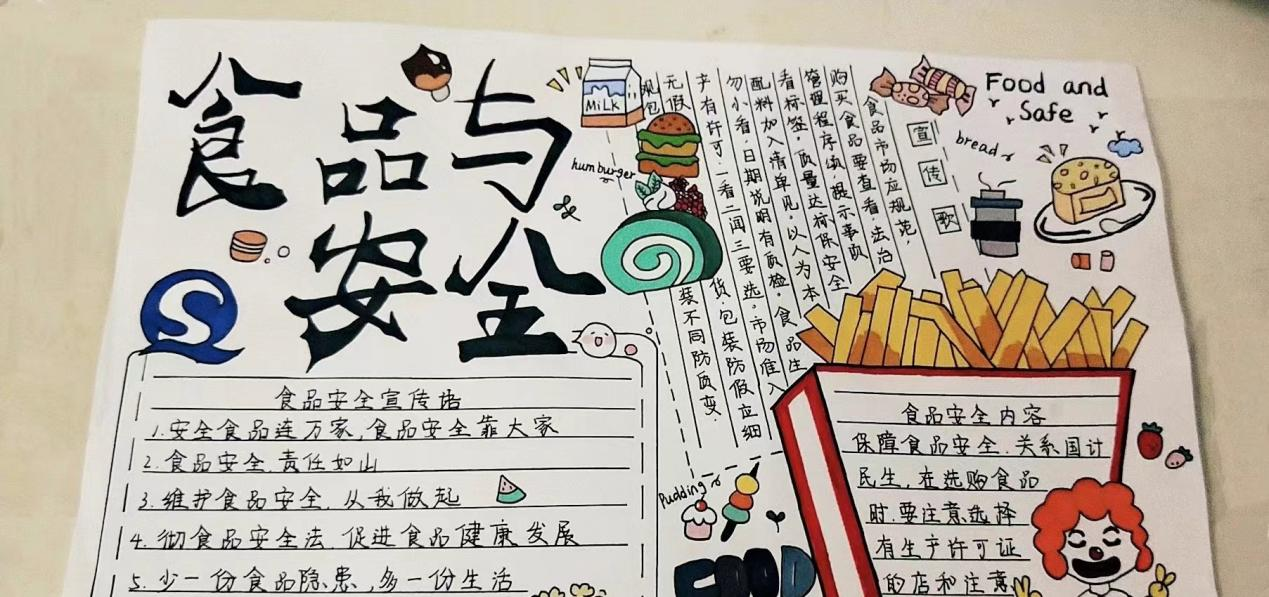 食品与
安全
MiLK
humburger
宣传歌
食品市场应规范,
购买食品要查看,法治
管理程序填,提示事项
看标签,质量达标保安全
配料加入清单见,以人为本
勿小看,日期说明有质检,食品生
产有许可,一看二闻三要选。市场准入
无假货,包装防假应细
观包装不同防质变.
Food and
Safe
bread
S
食品安全宣传语
1.安全食品连万家,食品安全靠大家
2.食品安全,责任如山
3.维护食品安全,从我做起
4.彻食品安全法,促进食品健康发展
5.少一份食品隐患,多一份生活
Pudding
FOOD
食品安全内容
保障食品安全,关系国计
民生,在选购食品
时,要注意选择
有生产许可证
的店和注意